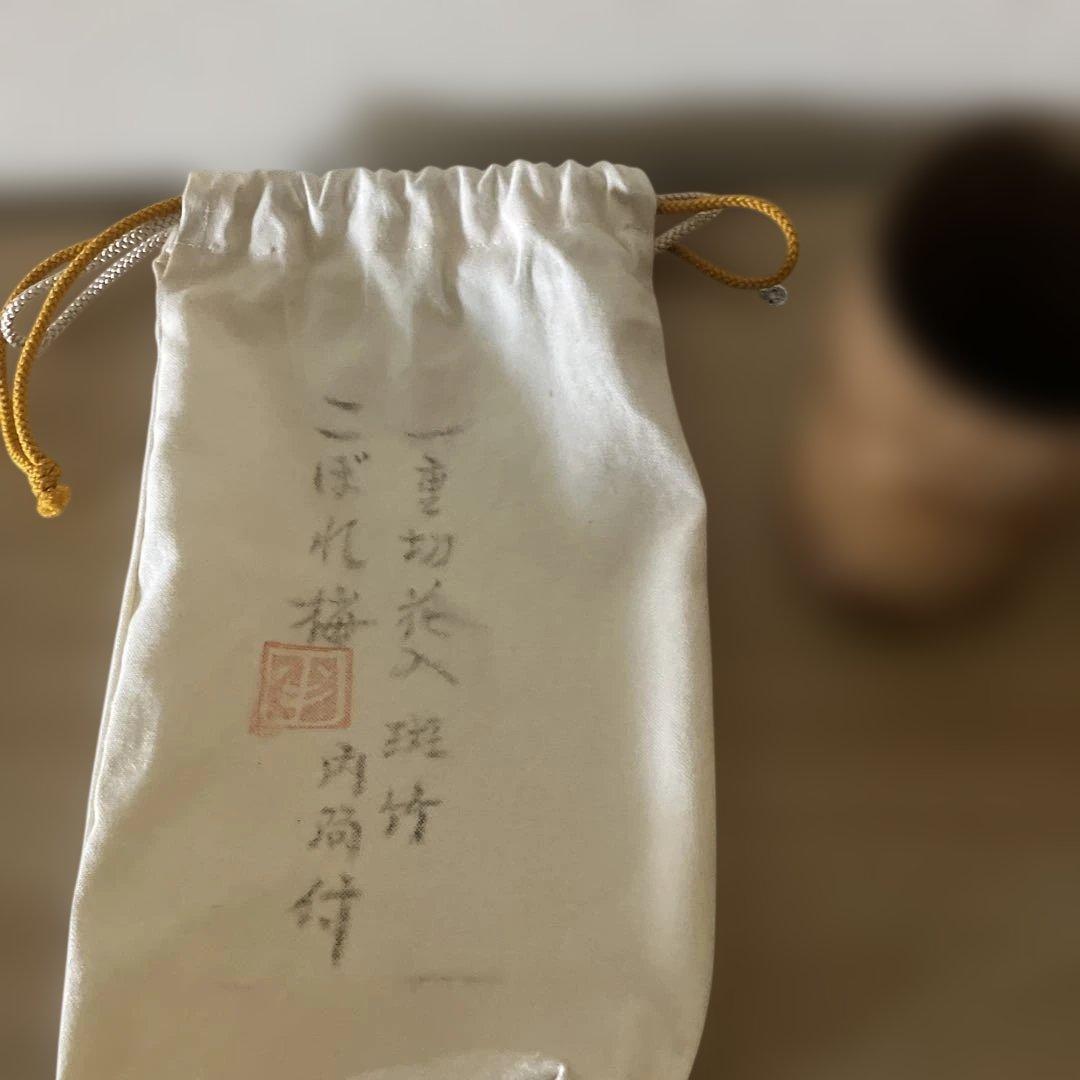 一重切花入 斑竹
こぼれ梅 内筒付